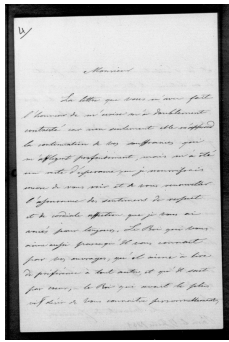 4/
Monsieur
La lettre que vous m'avez fait
l'honneur de m'écrire m'a doublement
contristé car non seulement elle m'apprend
la continuation de vos souffrances qui
m'affligent profondément, mais m'a ôté
un reste d'espérance que je nourrissais
encore de vous voir et de vous renouveler
l'expression des sentiments de respect
et de cordiale affection que je vous ai
voués pour toujours. Le Roi qui vous
aime aussi parce qu'il vous connait
par vos ouvrages, qu'il aime à lire
de préférence à tout autre et qu'il sait
par cœur, le Roi qui avait le plus
vif désir de vous connaitre personnellement,